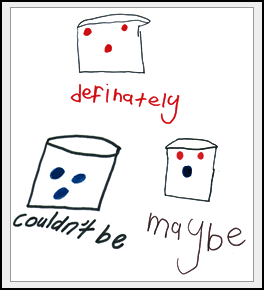 definately
couldn't be
maybe